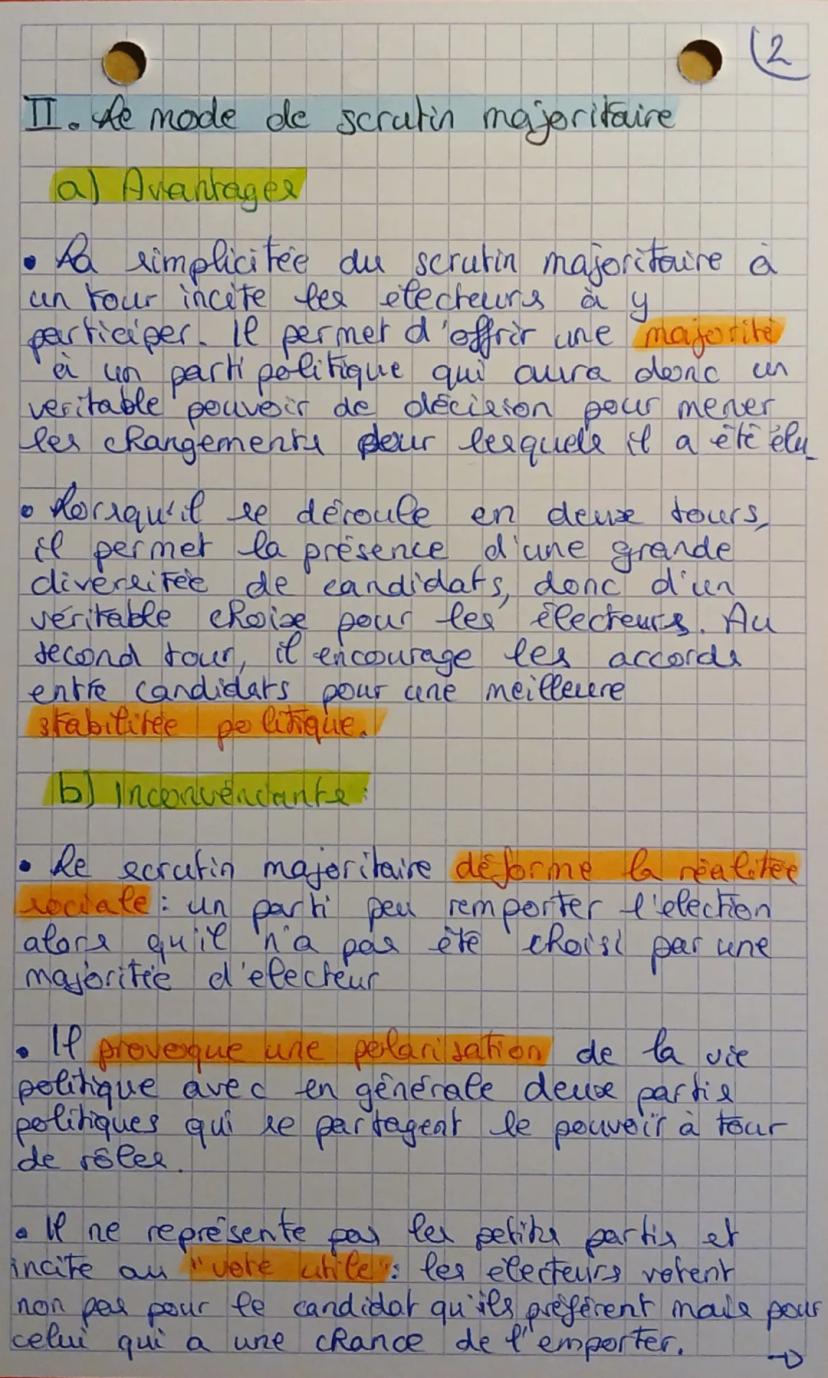 (2
II. Le mode de scrutin majoritaire
a) Avantages
• La simplicitée du scrutin majoritaire à
un tour incite les électeurs à y
participer. Il permet d'offrir une majorité
à un parti politique qui aura donc un
veritable pouvoir de décision pour mener
les changements pour lesquels il a été élu_
• Lorsqu'il se déroule en deux tours,
il permet la présence d'une grande
diversitée de candidats, donc d'un
véritable choix pour les électeurs. Au
second tour, il encourage les accords
entre candidats pour une meilleure
stabilitée politique.
b) Inconvéniants :
• Le scrutin majoritaire déforme la réalitée
sociale : un parti peu remporter l'election
alors qu'il n'a pas été choisi par une
majoritée d'electeur
• Il provoque une polarisation de la vie
politique avec en générale deux partis
politiques qui se partagent le pouvoir à tour
de rôles.
• Il ne représente pas les petits partis et
incite au "vote utile" : les électeurs votent
non pas pour le candidat qu'ils préfèrent mais pour
celui qui a une chance de l'emporter.
→